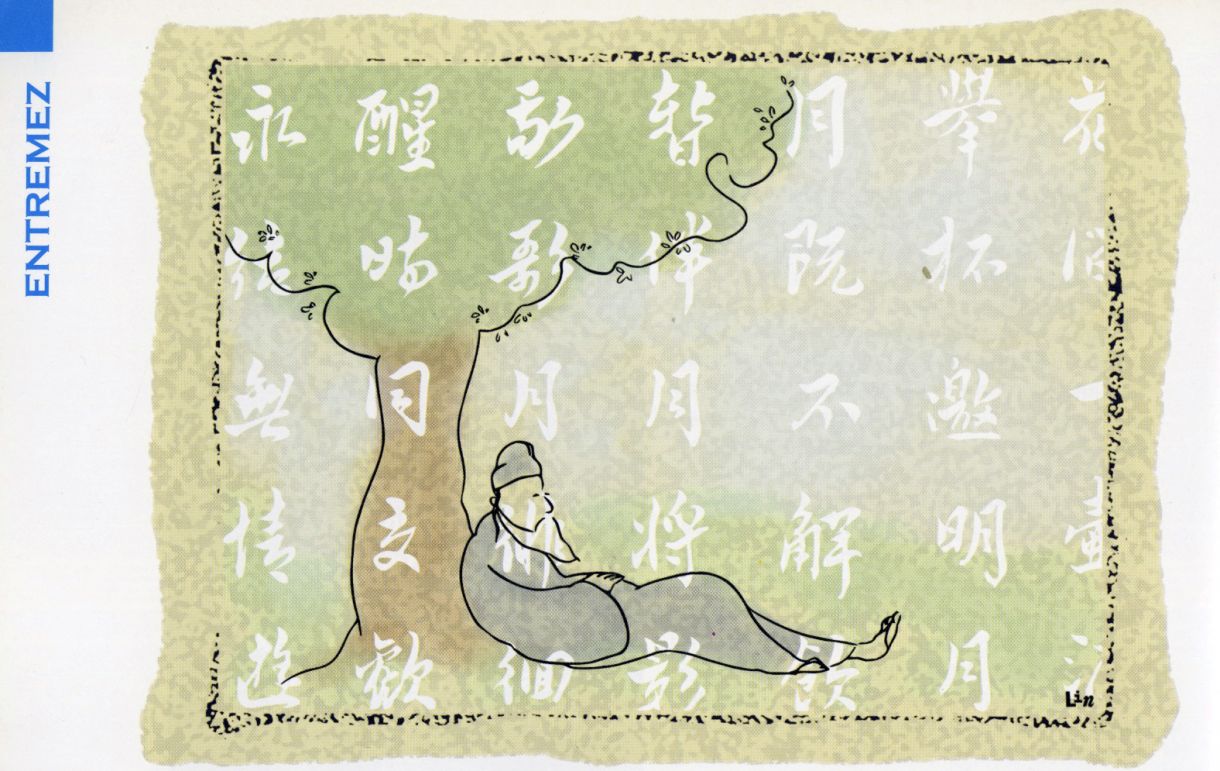 ENTREMEZ
花間一壺酒
舉杯邀明月
月既不解飲
暫伴月將影
我歌月徘徊
醒時同交歡
永結無情遊
Lin